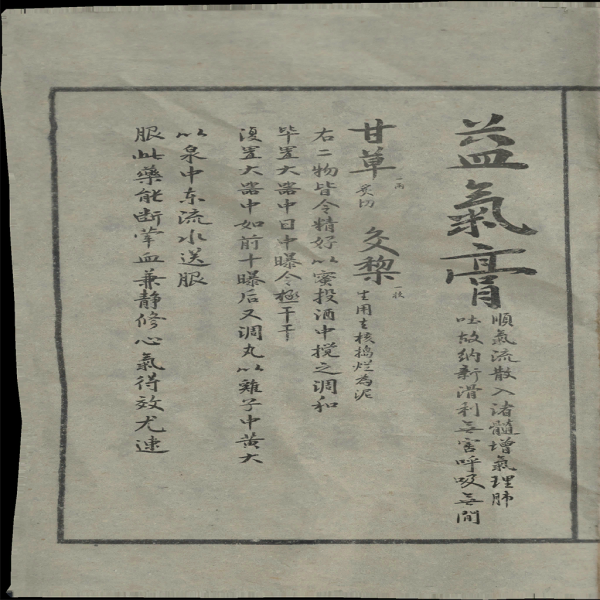 益氣膏
順氣流散入渚髓增氣理肺
吐故納新滑利無害呼吸無間
甘草
一两
炙切
交黎
一枚
生用去核捣烂為泥
右二物皆令精好以蜜投酒中搅之调和
毕置大器中日中曝令極干干
復置大器中如前十曝后又调丸以雞子中黄大
以泉中东流水送服
服此藥能断葷血兼静修心氣得效尤速